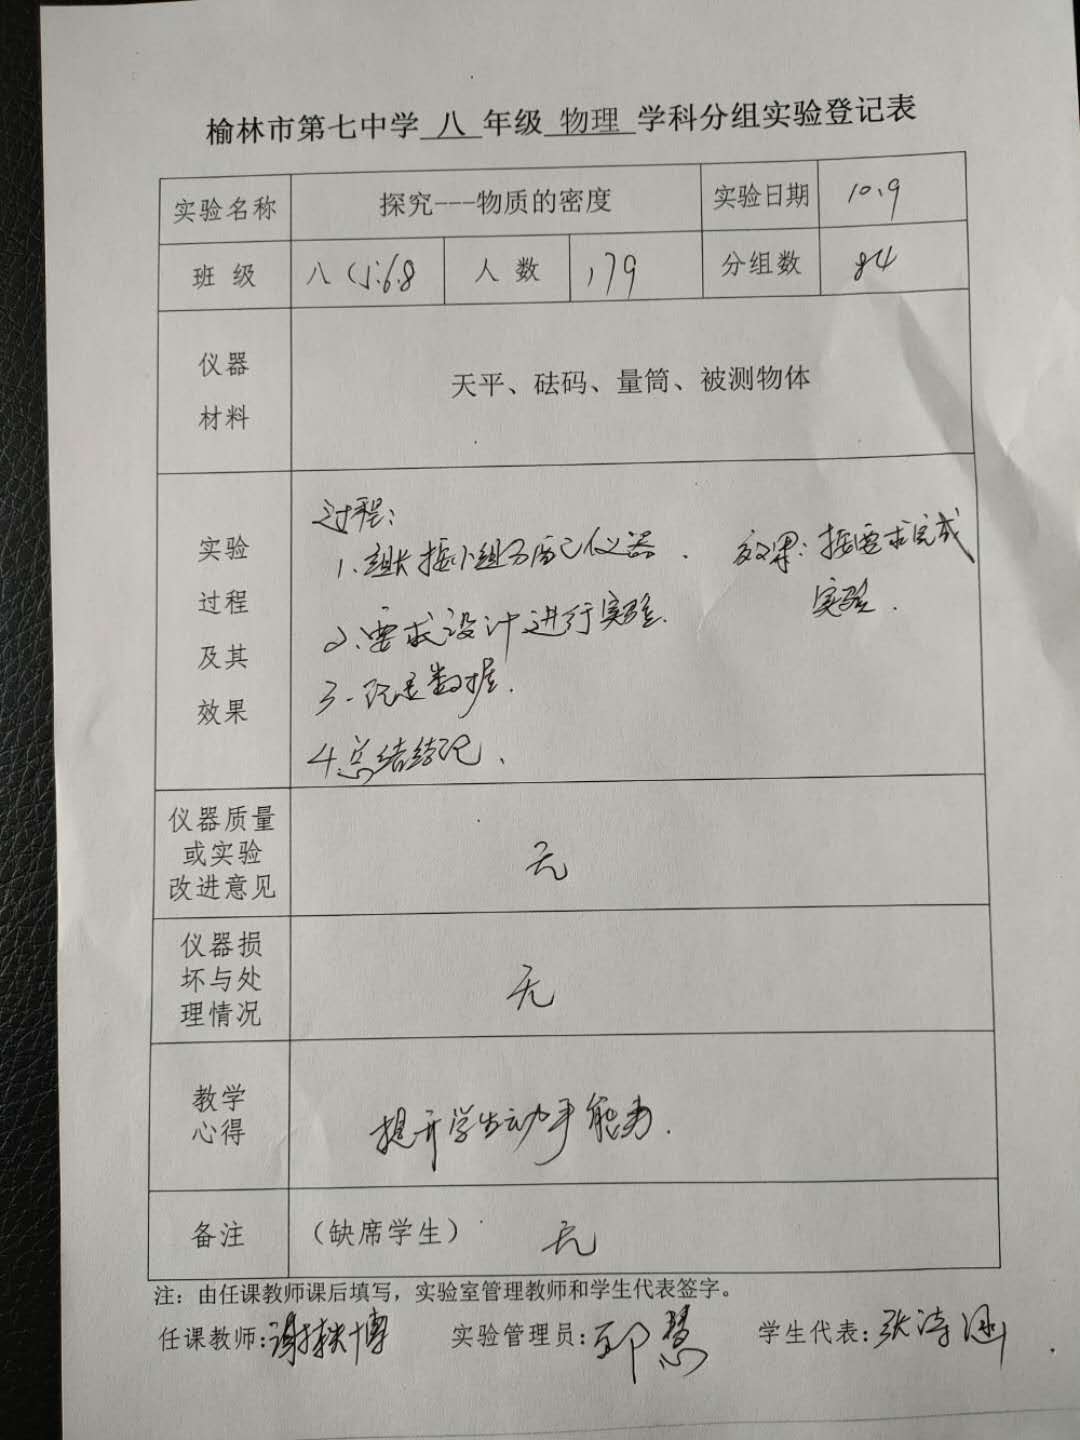 榆林市第七中学 八 年级 物理 学科分组实验登记表
实验名称 探究---物质的密度 实验日期 10.9
班 级 八 人 数 179 分组数 84
仪器
材料
天平、砝码、量筒、被测物体
实验
过程
及其
效果
过程:
1.组长按小组分配仪器.
2.要求设计进行实验.
3.记录数据.
4.总结结论.
效果:按要求完成
实验.
仪器质量
或实验
改进意见
无
仪器损
坏与处
理情况
无
教学
心得
提升学生动手能力.
备注 (缺席学生) 无
注:由任课教师课后填写,实验室管理教师和学生代表签字。
任课教师: 实验管理员: 慧 学生代表:张涛